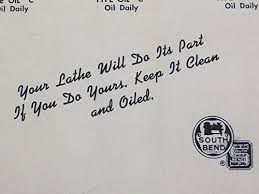 TYPE OIL "C"
Oil Daily
Oil Daily
Your Lathe Will Do Its Part
If You Do Yours. Keep It Clean
and Oiled.
SOUTH
BEND